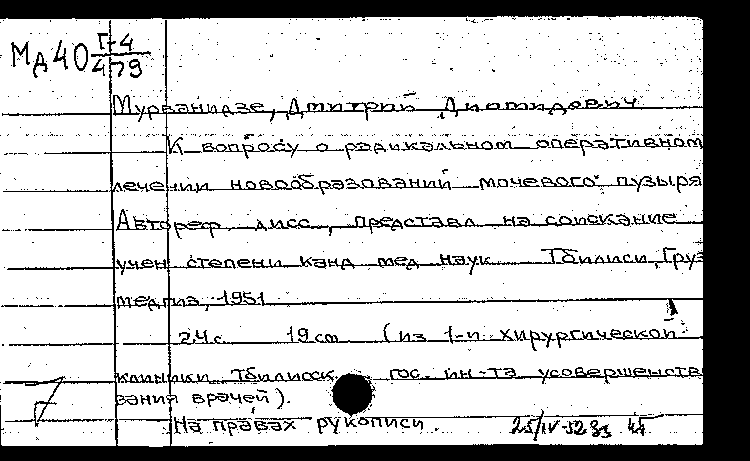 Мд40 Г-4/479
Мурванидзе, Дмитрий Диомидович
К вопросу о радикальном оперативном
лечении новообразований мочевого пузыря
Автореф. дисс., представл на соискание
учен степени канд мед наук Тбилиси, Груз
медгиз, 1951
24с. 19см (из 1-й хирургической
клиники Тбилисск гос. ин-та усовершенство
вания врачей).
На правах рукописи. 25/IV-52